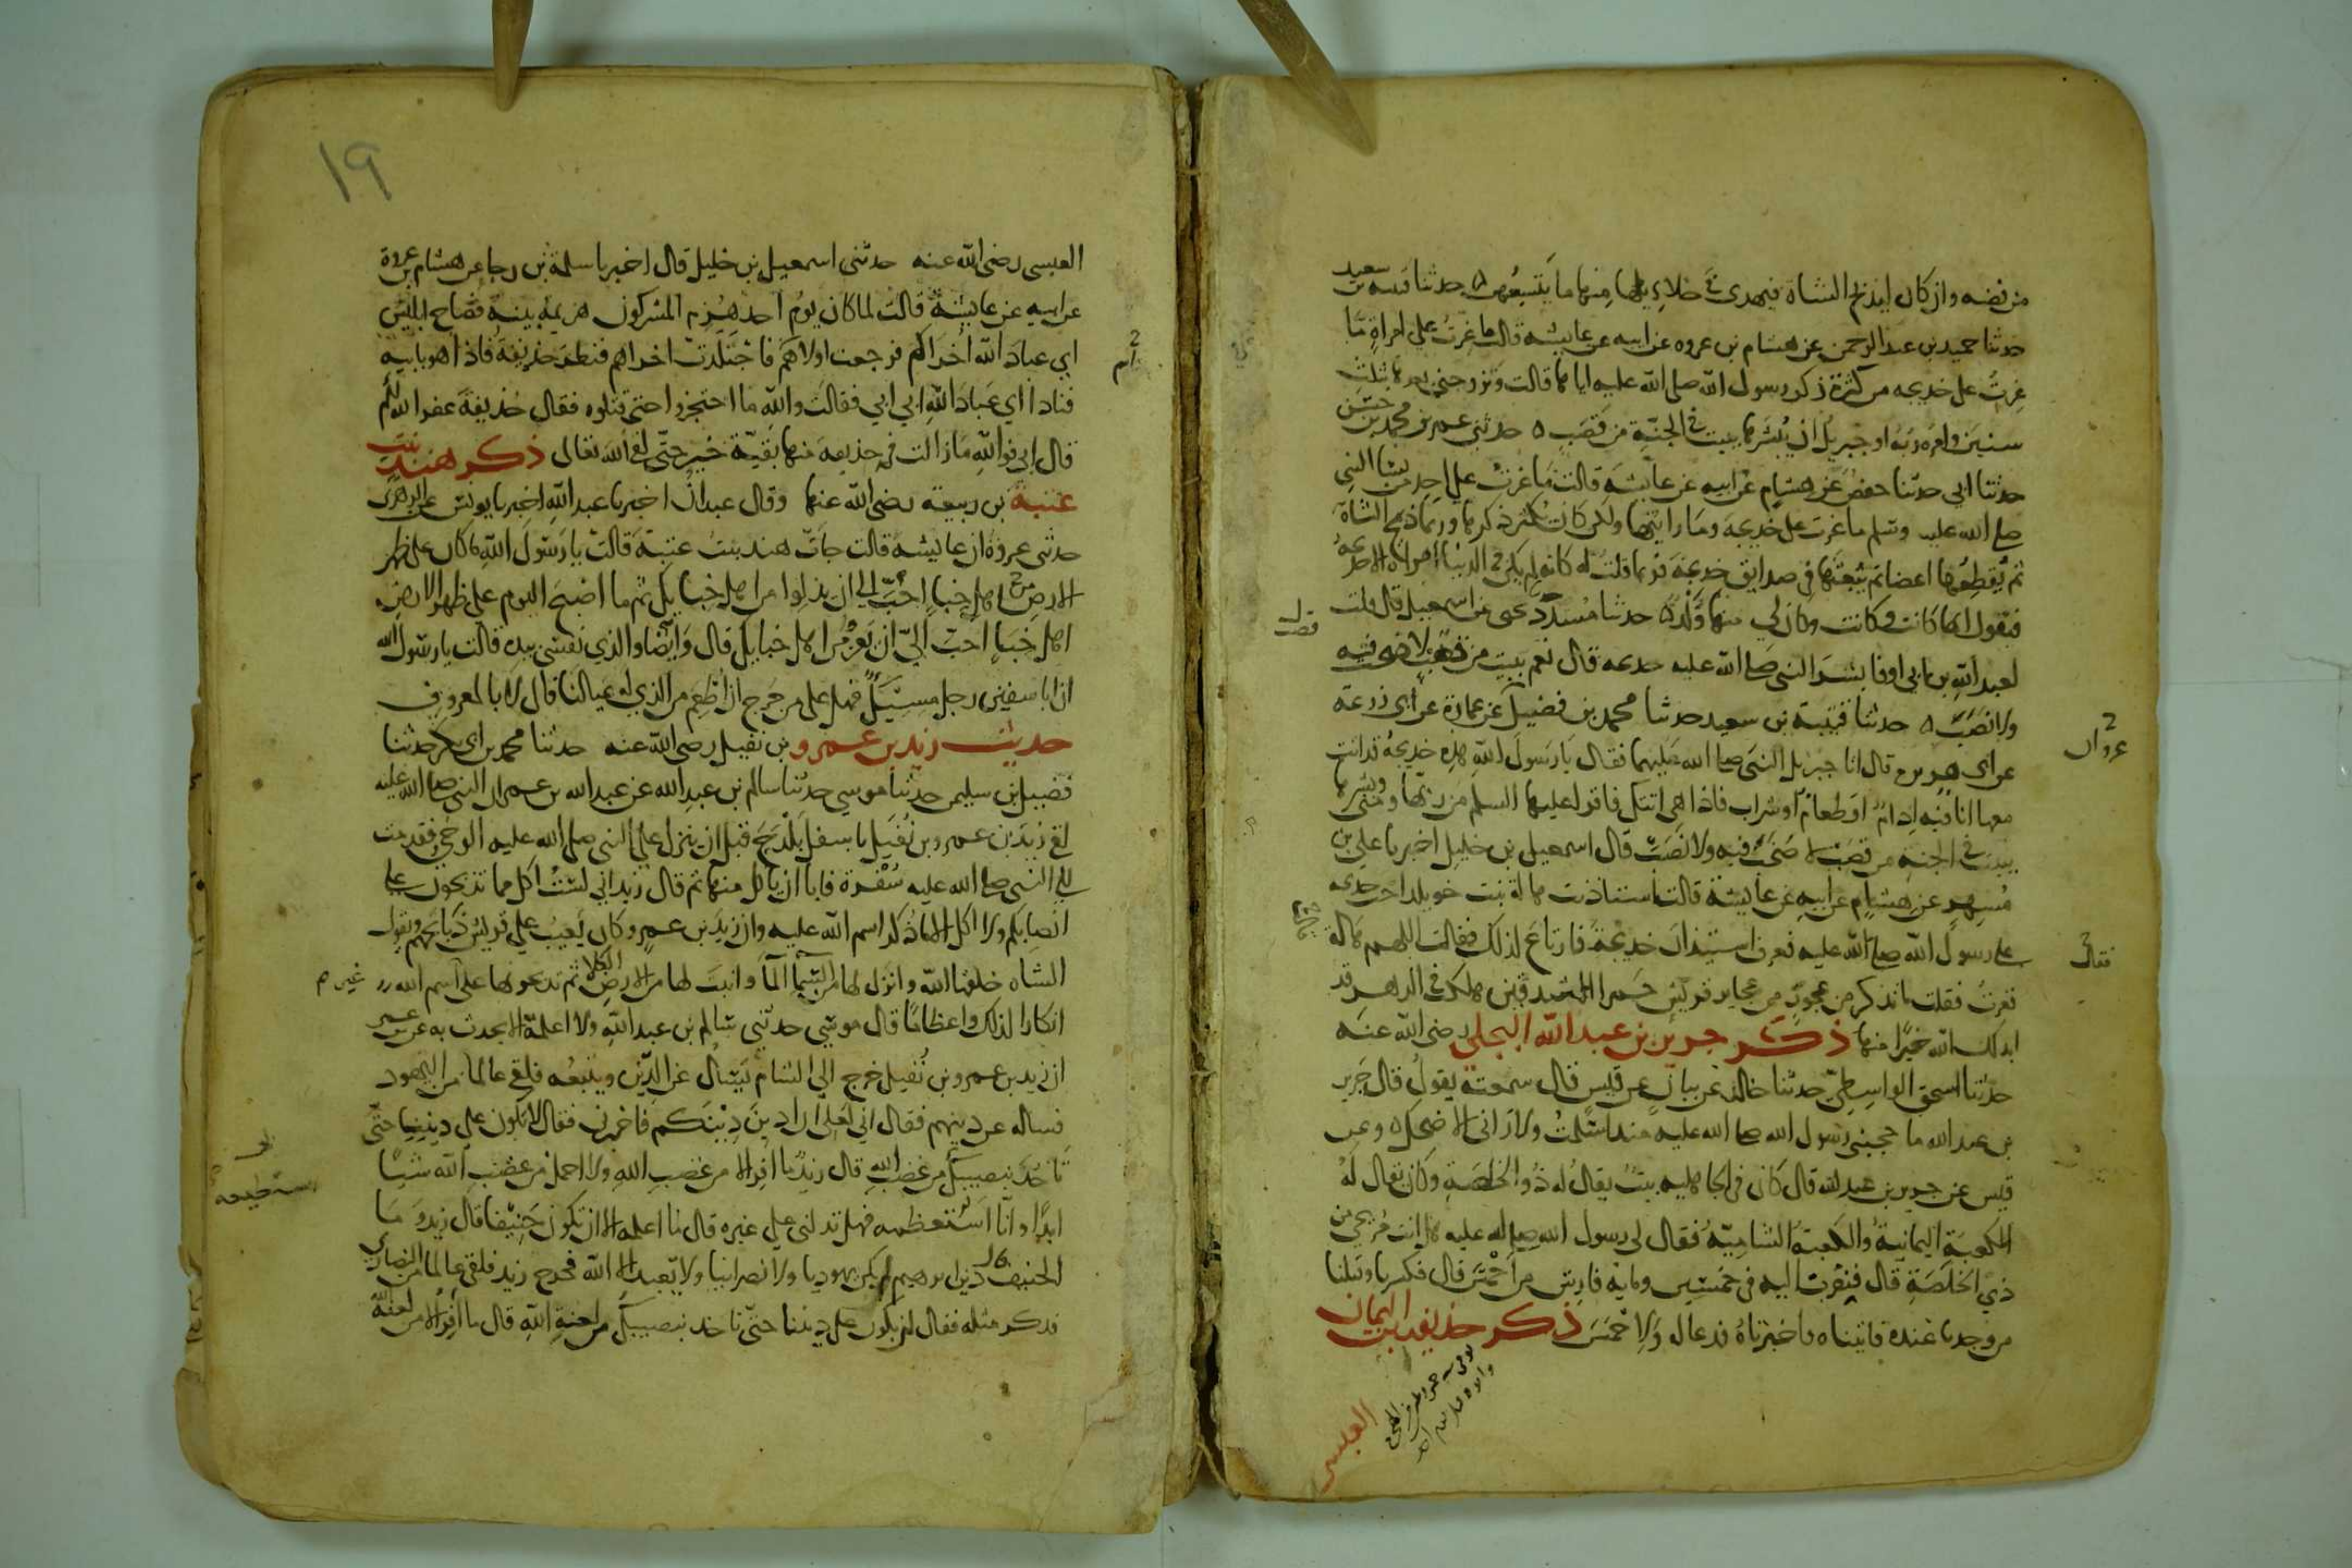 من فضه وان كان ليذبح الشاة فيهدي في خلائلها منها ما يتسعهن حدثنا قتيبه بن سعيد
حدثنا حميد بن عبد الرحمن عن هشام بن عروه عن ابيه عن عايشه قالت ما غرت على امراة ما
غرت على خديجه من كثرة ذكر رسول الله صلى الله عليه اياها قالت وتزوجني بعدها بثلث
سنين وامره ربه او جبريل ان يبشرها ببيت في الجنة من قصب حدثني عمر بن محمد بن حسن
حدثنا ابي حدثنا حفص عن هشام عن ابيه عن عايشه قالت ما غرت على احد من نسا النبي
صلى الله عليه وسلم ما غرت على خديجه وما رايتها ولكن كان يكثر ذكرها وربما ذبح الشاة
ثم يقطعها اعضا ثم يبعثها في صدايق خديجة فربما قلت له كانه لم يكن في الدنيا امراة الا خديجة
فيقول انها كانت وكانت وكان لي منها ولد حدثنا مسدد يحيى عن اسمعيل قال قلت
لعبد الله بن ابي اوفا بشر النبي صلى الله عليه خديجه قال نعم ببيت من قصب لا صخب فيه
ولا نصب حدثنا قتيبة بن سعيد حدثنا محمد بن فضيل عن عمارة عن ابي زرعة
عن ابي هريره قال اتا جبريل النبي صلى الله عليهما فقال يا رسول الله هذه خديجة قد اتت
معها انا فيه ادام او طعام او شراب فاذا هي اتتك فاقرا عليها السلم من ربها ومني وبشرها
ببيت في الجنة من قصب لا صخب فيه ولا نصب قال اسمعيل بن خليل اخبرنا علي بن
مسهر عن هشام عن ابيه عن عايشة قالت استاذنت هالة بنت خويلد اخت خديجه
على رسول الله صلى الله عليه فعرف استيذان خديجة فارتاع لذلك فقالت اللهم هالة
فغرت فقلت ما تذكر من عجوز من عجايز قريش حمرا الشدقين هلكت في الدهر قد
ابدلك الله خيرا منها ذكر جرير بن عبد الله البجلي رضي الله عنه
حدثنا اسحق الواسطي حدثنا خالد عن بيان عن قيس قال سمعته يقول قال جرير
بن عبد الله ما حجبني رسول الله صلى الله عليه منذ اسلمت ولا راني الا ضحك وعن
قيس عن جرير بن عبد الله قال كان في الجاهليه بيت يقال له ذو الخلصة وكان يقال له
الكعبة اليمانية والكعبة الشامية فقال لي رسول الله صلى الله عليه هل انت مريحي من
ذي الخلصة قال فنفرت اليه في خمسين ومايه فارس من احمس قال فكسرنا وقتلنا
من وجدنا عنده فاتيناه فاخبرناه فدعا له ولاحمس ذكر حذيفه بن اليمان
العبسي
غزوان
فقال
١٩
العبسي رضي الله عنه حدثني اسمعيل بن خليل قال اخبرنا سلمة بن رجا عن هشام بن عروة
عن ابيه عن عايشة قالت لما كان يوم احد هزم المشركون هزيمه بينة فصاح ابليس
اي عباد الله اخراكم فرجعت اولاهم فاجتلدت اخراهم فنظر حذيفة فاذا هو بابيه
فنادا اي عباد الله ابي ابي فقالت والله ما احتجزوا حتى قتلوه فقال حذيفة غفر الله لكم
قال ابي فوالله ما زالت في حذيفه منها بقية خير حتى لقي الله تعالى ذكر هند بنت
عتبة بن ربيعة رضي الله عنها وقال عبدان اخبرنا عبد الله اخبرنا يونس عن الزهري
حدثني عروة ان عايشه قالت جات هند بنت عتبة قالت يا رسول الله ما كان على ظهر
الارض من اهل خباء احب الي ان يذلوا من اهل خبايك ثم ما اصبح اليوم على ظهر الارض
اهل خباء احب الي ان يعزوا من اهل خبايك قال وايضا والذي نفسي بيده قالت يا رسول الله
ان ابا سفين رجل مسيك فهل علي من حرج ان اطعم من الذي له عيالنا قال لا بالمعروف
حديث زيد بن عمرو بن نفيل رضي الله عنه حدثنا محمد بن ابي بكر حدثنا
فضيل بن سليمن حدثنا موسي حدثنا سالم بن عبد الله عن عبد الله بن عمر ان النبي صلى الله عليه
لقي زيد بن عمرو بن نفيل باسفل بلدح قبل ان ينزل على النبي صلى الله عليه الوحي فقدمت
الى النبي صلى الله عليه سفرة فابا ان ياكل منها ثم قال زيد اني لست اكل مما تذبحون على
انصابكم ولا اكل الا ما ذكر اسم الله عليه وان زيد بن عمرو كان يعيب على قريش ذبايحهم ويقول
الشاه خلقها الله وانزل لها من السما الما وانبت لها من الارض الكلا ثم تذبحونها على اسم الله غير
انكارا لذلك واعظاما قال موسي حدثني سالم بن عبد الله ولا اعلمه الا يحدث به عن ابن عمر
ان زيد بن عمرو بن نفيل خرج الى الشام يسال عن الدين ويتبعه فلقي عالما من اليهود
فساله عن دينهم فقال اني لعلي ان ادين دينكم فاخبرني فقال لا تكون على ديننا حتى
تاخذ بنصيبك من غضب الله قال زيد ما افر الا من غضب الله ولا احمل من غضب الله شيا
ابدا وانا استطيعه فهل تدلني على غيره قال ما اعلمه الا ان تكون حنيفا قال زيد وما
الحنيف قال دين ابرهيم لم يكن يهوديا ولا نصرانيا ولا يعبد الا الله فخرج زيد فلقي عالما من النصاري
فذكر مثله فقال لن تكون على ديننا حتى تاخذ بنصيبك من لعنة الله قال ما افر الا من لعنة الله